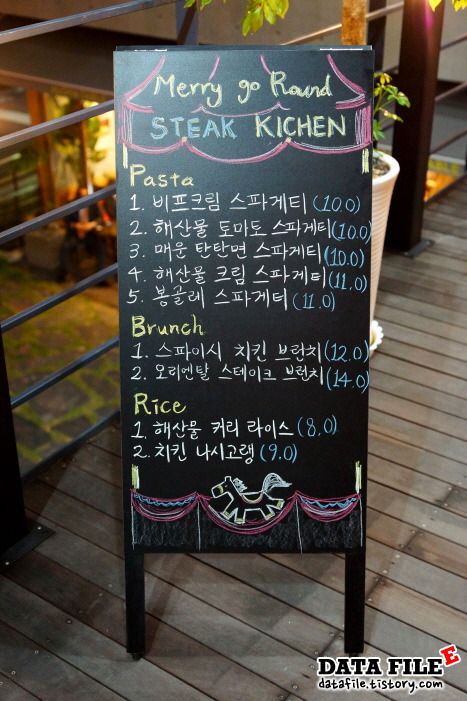 Merry go Round
STEAK KICHEN
Pasta
1. 비프크림 스파게티 (10.0)
2. 해산물 토마토 스파게티 (10.0)
3. 매운 탄탄면 스파게티 (10.0)
4. 해산물 크림 스파게티 (11.0)
5. 봉골레 스파게티 (11.0)
Brunch
1. 스파이시 치킨 브런치 (12.0)
2. 오리엔탈 스테이크 브런치 (14.0)
Rice
1. 해산물 커리 라이스 (8.0)
2. 치킨 나시고랭 (9.0)
DATA FILE E
datafile.tistory.com